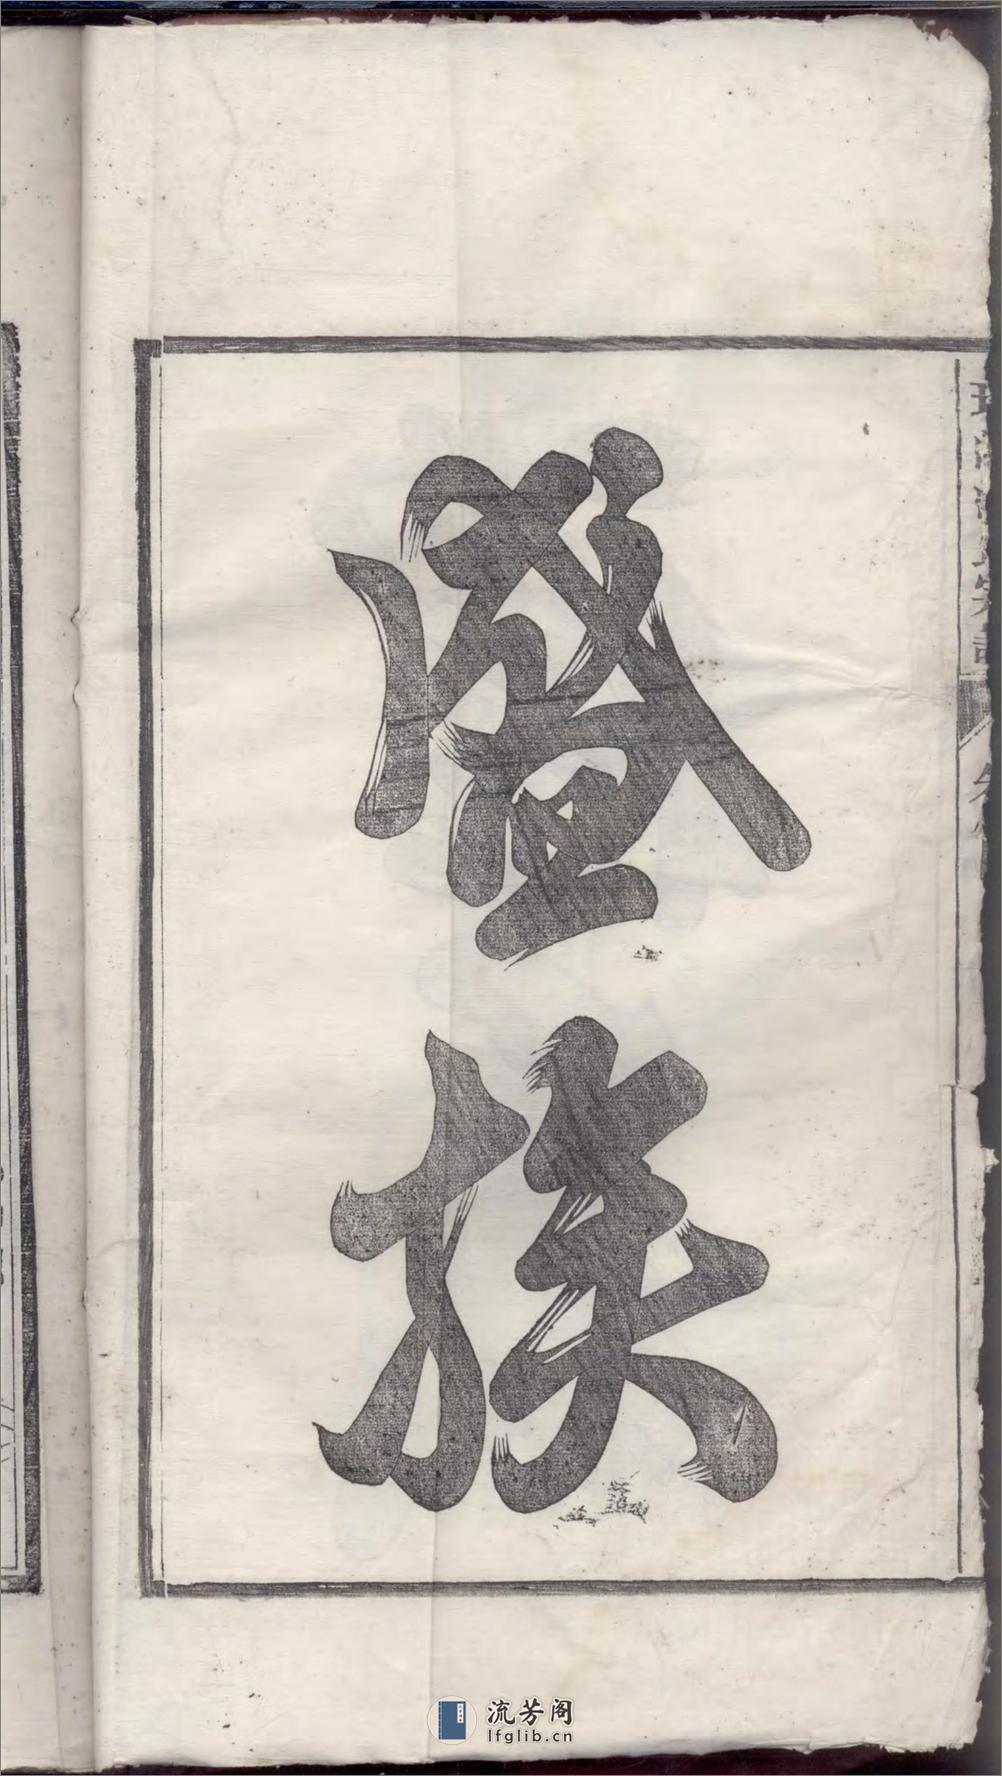 盛
族
流芳阁
lfglib.cn